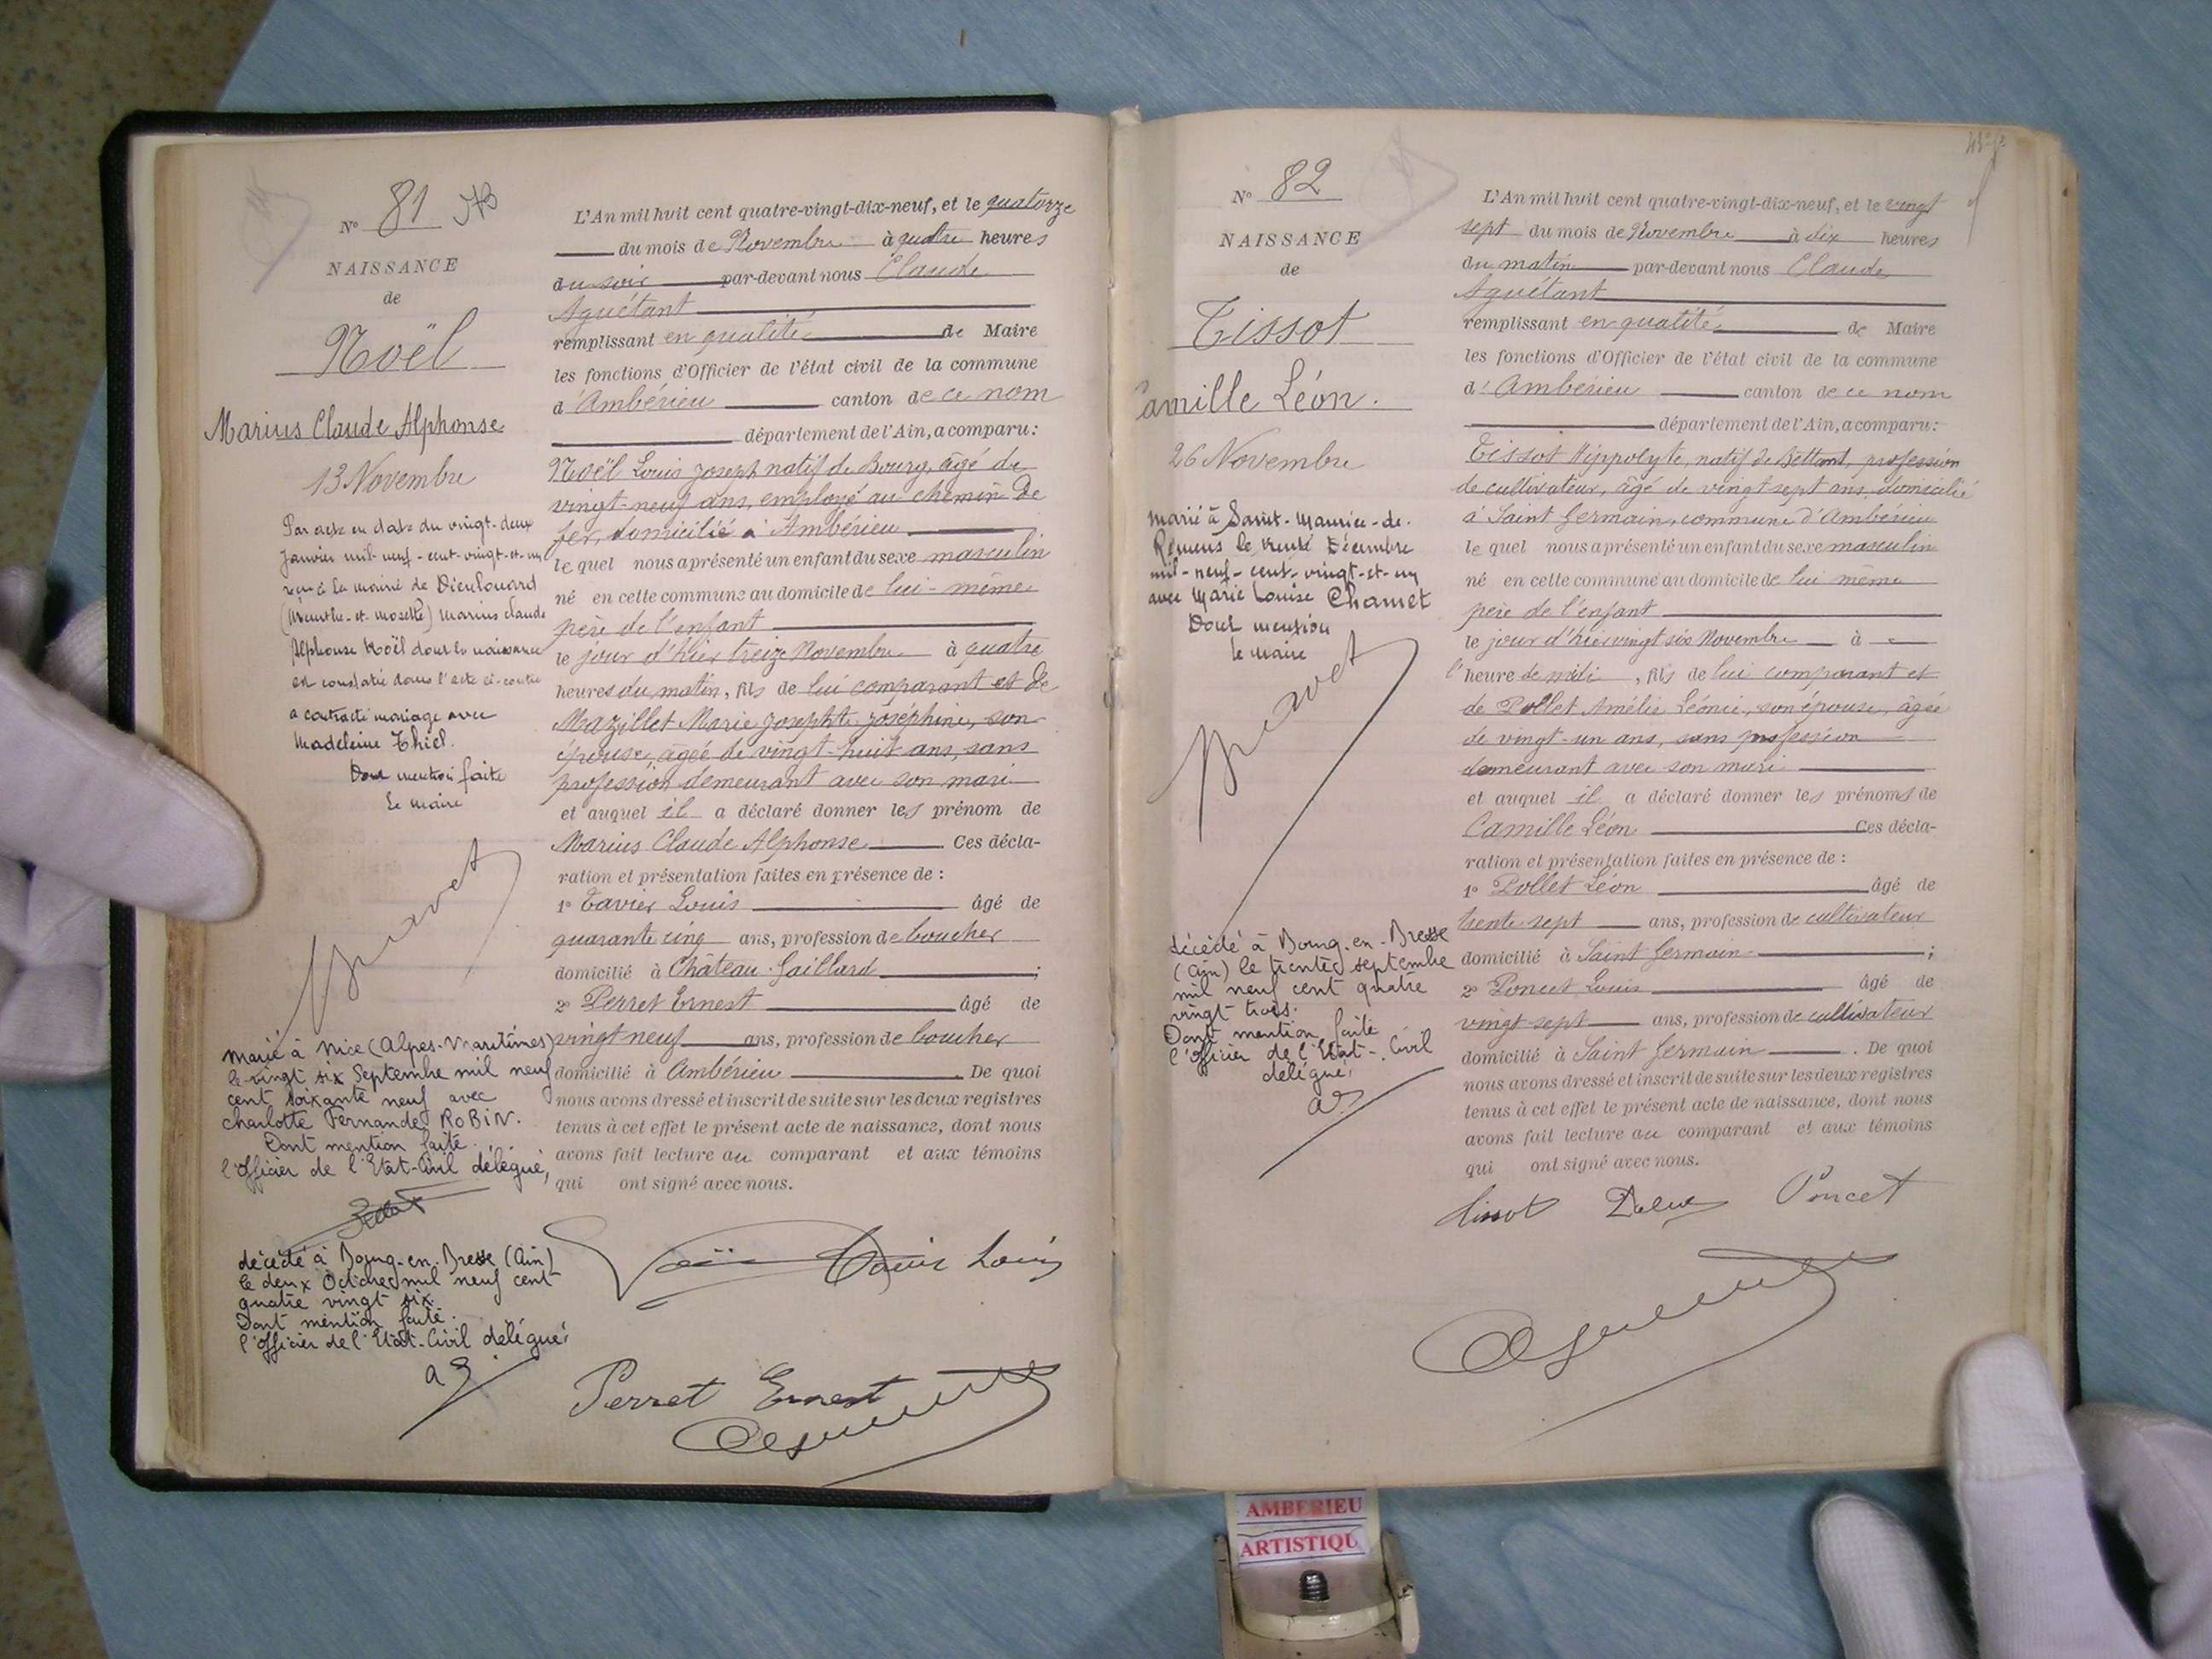 N° 81
NAISSANCE
de
Noël
Marius Claude Alphonse
13 Novembre
Par acte en date du vingt-deux
Janvier mil-neuf-cent-vingt-et-un
reçu à la mairie de Dieulouard
(Meurthe-et-Moselle) Marius Claude
Alphonse Noël dont la naissance
est constatée dans l'acte ci-contre
a contracté mariage avec
Madeleine Thiel.
Dont mention faite
Le Maire
Marié à Nice (Alpes-Maritimes)
le vingt six Septembre mil neuf
cent soixante neuf avec
Charlotte Fernande ROBIN.
Dont mention faite.
l'Officier de l'Etat-Civil délégué,
décédé à Bourg-en-Bresse (Ain)
le deux Octobre mil neuf cent
quatre vingt six.
Dont mention faite.
l'Officier de l'Etat-Civil délégué,
L'An mil huit cent quatre-vingt-dix-neuf, et le quatorze
du mois de Novembre à quatre heures
du soir par-devant nous Claude
Aguétant
remplissant en qualité de Maire
les fonctions d'Officier de l'état civil de la commune
d'Ambérieu canton de ce nom
département de l'Ain, a comparu:
Noël Louis Joseph natif de Bourg, âgé de
vingt-neuf ans, employé au chemin de
fer, domicilié à Ambérieu
le quel nous a présenté un enfant du sexe masculin
né en cette commune au domicile de lui-même
père de l'enfant
le jour d'hier treize Novembre à quatre
heures du matin, fils de lui comparant et de
Mazillet Marie Josephte Joséphine, son
épouse, agée de vingt-huit ans, sans
profession demeurant avec son mari
et auquel il a déclaré donner les prénom de
Marius Claude Alphonse Ces décla-
ration et présentation faites en présence de :
1° Tavier Louis âgé de
quarante cinq ans, profession de boucher
domicilié à Château-Gaillard ;
2° Perret Ernest âgé de
vingt neuf ans, profession de boucher
domicilié à Ambérieu. De quoi
nous avons dressé et inscrit de suite sur les deux registres
tenus à cet effet le présent acte de naissance, dont nous
avons fait lecture au comparant et aux témoins
qui ont signé avec nous.
Louis
Perret Ernest
N° 82
NAISSANCE
de
Tissot
Camille Léon.
26 Novembre
Marié à Saint-Maurice-de-
Rémens le trente Décembre
mil-neuf-cent-vingt-et-un
avec Marie Louise Chamet
Dont mention
le Maire
décédé à Bourg-en-Bresse
(Ain) le trente septembre
mil neuf cent quatre
vingt trois.
Dont mention faite
l'Officier de l'Etat-Civil
délégué,
L'An mil huit cent quatre-vingt-dix-neuf, et le vingt
sept du mois de Novembre à dix heures
du matin par-devant nous Claude
Aguétant
remplissant en qualité de Maire
les fonctions d'Officier de l'état civil de la commune
d'Ambérieu canton de ce nom
département de l'Ain, a comparu:
Tissot Hippolyte, natif de Bettant, profession
de cultivateur, âgé de vingt sept ans, domicilié
à Saint Germain, commune d'Ambérieu
le quel nous a présenté un enfant du sexe masculin
né en cette commune au domicile de lui même
père de l'enfant
le jour d'hier vingt six Novembre à
l'heure de midi, fils de lui comparant et
de Pollet Amélie Léonie, son épouse, âgée
de vingt-un ans, sans profession
demeurant avec son mari
et auquel il a déclaré donner les prénoms de
Camille Léon Ces décla-
ration et présentation faites en présence de :
1° Pollet Léon âgé de
trente sept ans, profession de cultivateur
domicilié à Saint Germain ;
2° Poncet Louis âgé de
vingt-sept ans, profession de cultivateur
domicilié à Saint Germain. De quoi
nous avons dressé et inscrit de suite sur les deux registres
tenus à cet effet le présent acte de naissance, dont nous
avons fait lecture au comparant et aux témoins
qui ont signé avec nous.
Tissot Poncet
AMBERIEU
ARTISTIQU